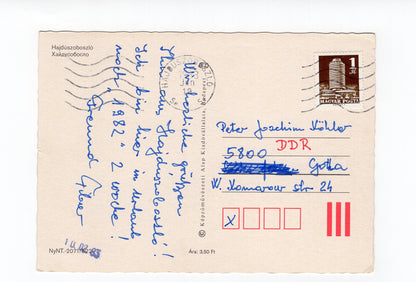 Hajdúszoboszló
Хайдусобосло
Wir herzliche grüßen
aus Hajduszoboszló!
Ich bin hier in urlaub
noch "1982" 2 woche!
Freund
1 Ft
MAGYAR POSTA
Peter Joachim Köhler
DDR
5800
Gotha
W. Komarow str 24
X
© Képzőművészeti Alap Kiadóvállalata, Budapest
Ára: 3,50 Ft